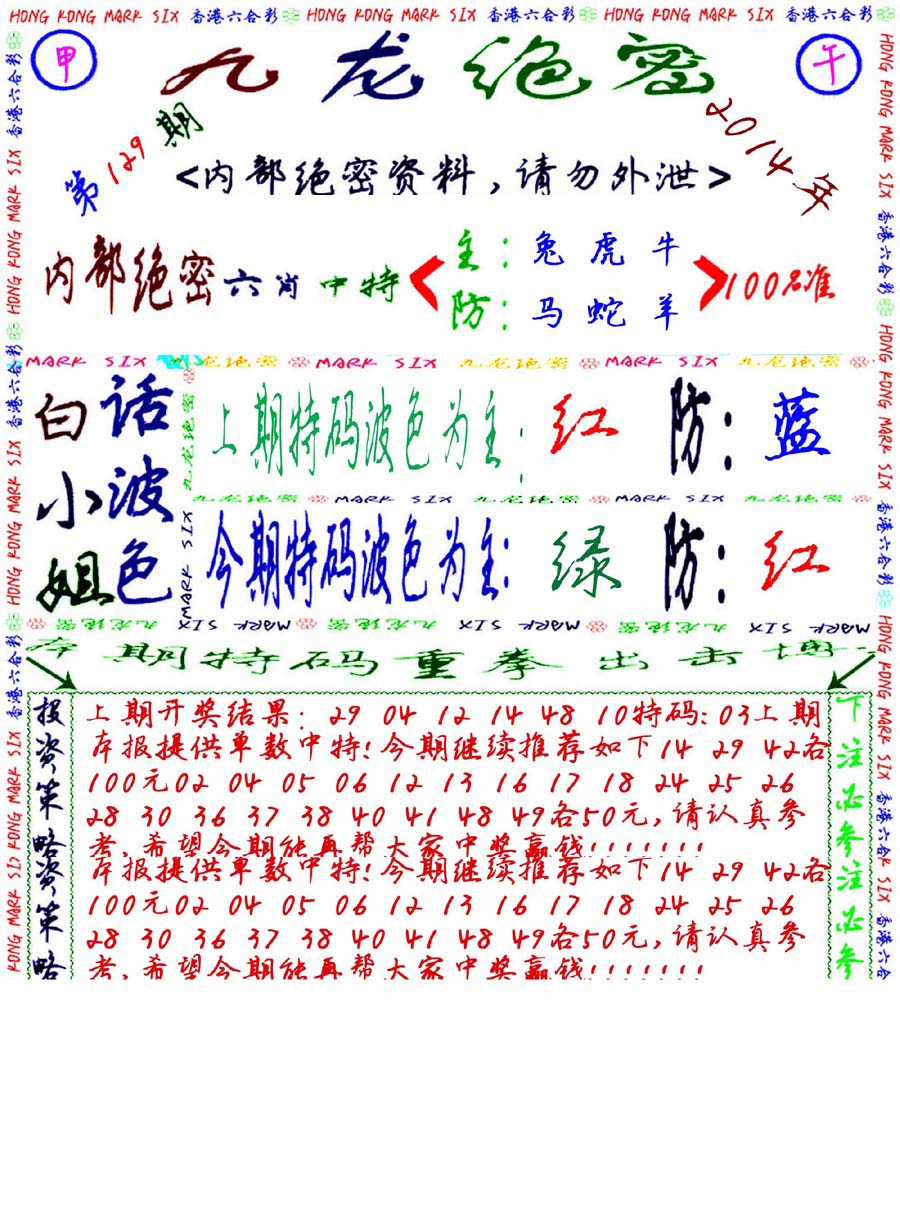 HONG KONG MARK SIX 香港六合彩 HONG KONG MARK SIX 香港六合彩 HONG KONG MARK SIX 香港六合彩
甲 九龙绝密 午
第129期 2014年
<内部绝密资料,请勿外泄>
内部绝密六肖中特
主:兔虎牛
防:马蛇羊
100%准
MARK SIX 九龙绝密 MARK SIX 九龙绝密 MARK SIX 九龙绝密
白话小姐波色
上期特码波色为主:红 防:蓝
九龙绝密 MARK SIX 九龙绝密 MARK SIX 九龙绝密
今期特码波色为主:绿 防:红
九龙绝密 MARK SIX 九龙绝密 MARK SIX 九龙绝密 MARK SIX
期特码重拳出击
投资策略资策略
上期开奖结果:29 04 12 14 48 10特码:03上期
本报提供单数中特!今期继续推荐如下14 29 42各
100元02 04 05 06 12 13 16 17 18 24 25 26
28 30 36 37 38 40 41 48 49各50元,请认真参
考,希望今期能再帮大家中奖赢钱!!!!!!!
本报提供单数中特!今期继续推荐如下14 29 42各
100元02 04 05 06 12 13 16 17 18 24 25 26
28 30 36 37 38 40 41 48 49各50元,请认真参
考,希望今期能再帮大家中奖赢钱!!!!!!!
下注必参注必参